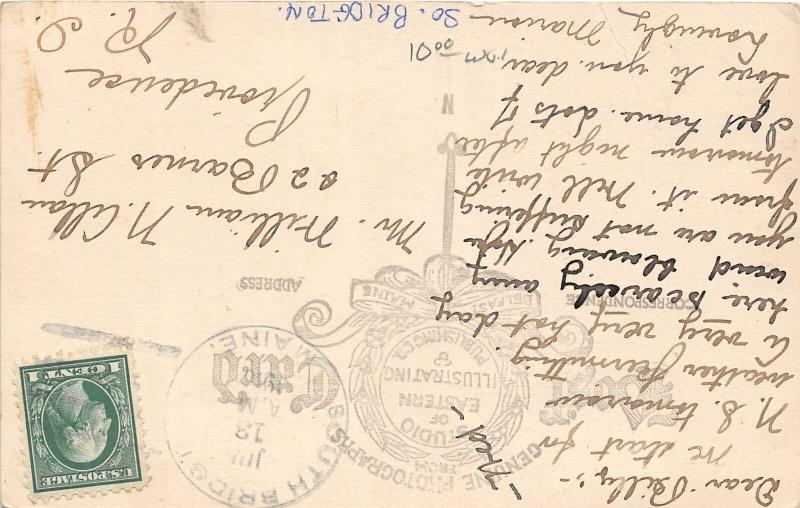 - Wed -
Dear Billy:-
We start for
N. S. tomorrow
weather permitting.
a very very hot day
here, scarcely any
wind blowing. Hope
you are not suffering
from it. Will write
tomorrow night after
I get home. Lots of
love to you dear,
Lovingly Marion
CORRESPONDENCE
Post Card
GENUINE PHOTOGRAPHS
FROM
STUDIO
OF
EASTERN
ILLUSTRATING
&
PUBLISHING CO.
BELFAST MAINE
N
ADDRESS
SOUTH BRIDGTON
MAINE.
13
A.M.
U.S. POSTAGE
1 CENT 1
Mr. William N.
82 Barnes St
Providence
R. I.
SO. BRIDGTON.